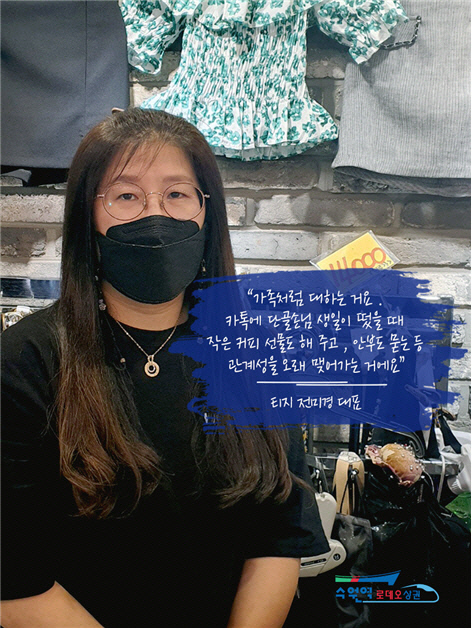 “가족처럼 대하는 거요.
카톡에 단골손님 생일이 떴을 때
작은 커피 선물도 해 주고, 안부도 묻는 등
관계성을 오래 맺어가는 거에요”
티지 전미경 대표
수원역 로데오상권